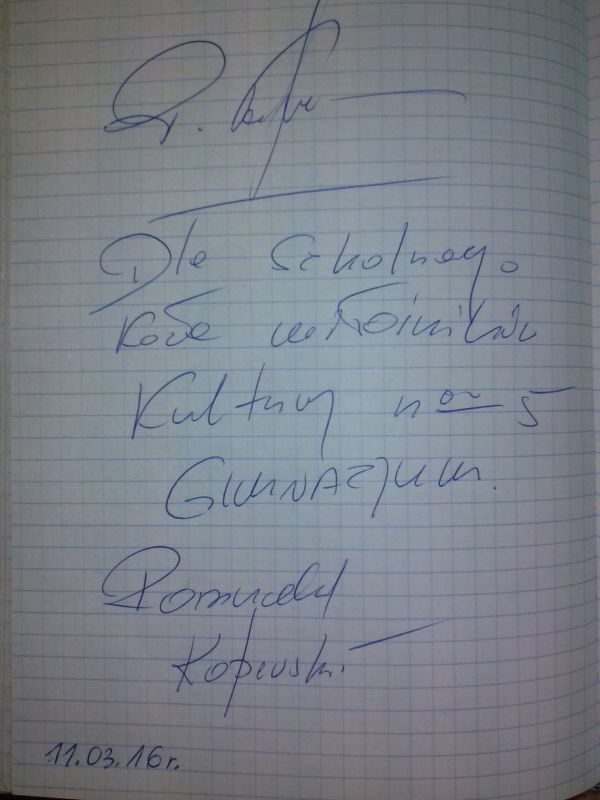 Dla Szkolnego
Koła miłośników
Kultury nr 5
GIMNAZJUM.
Romuald
11.03.16r.